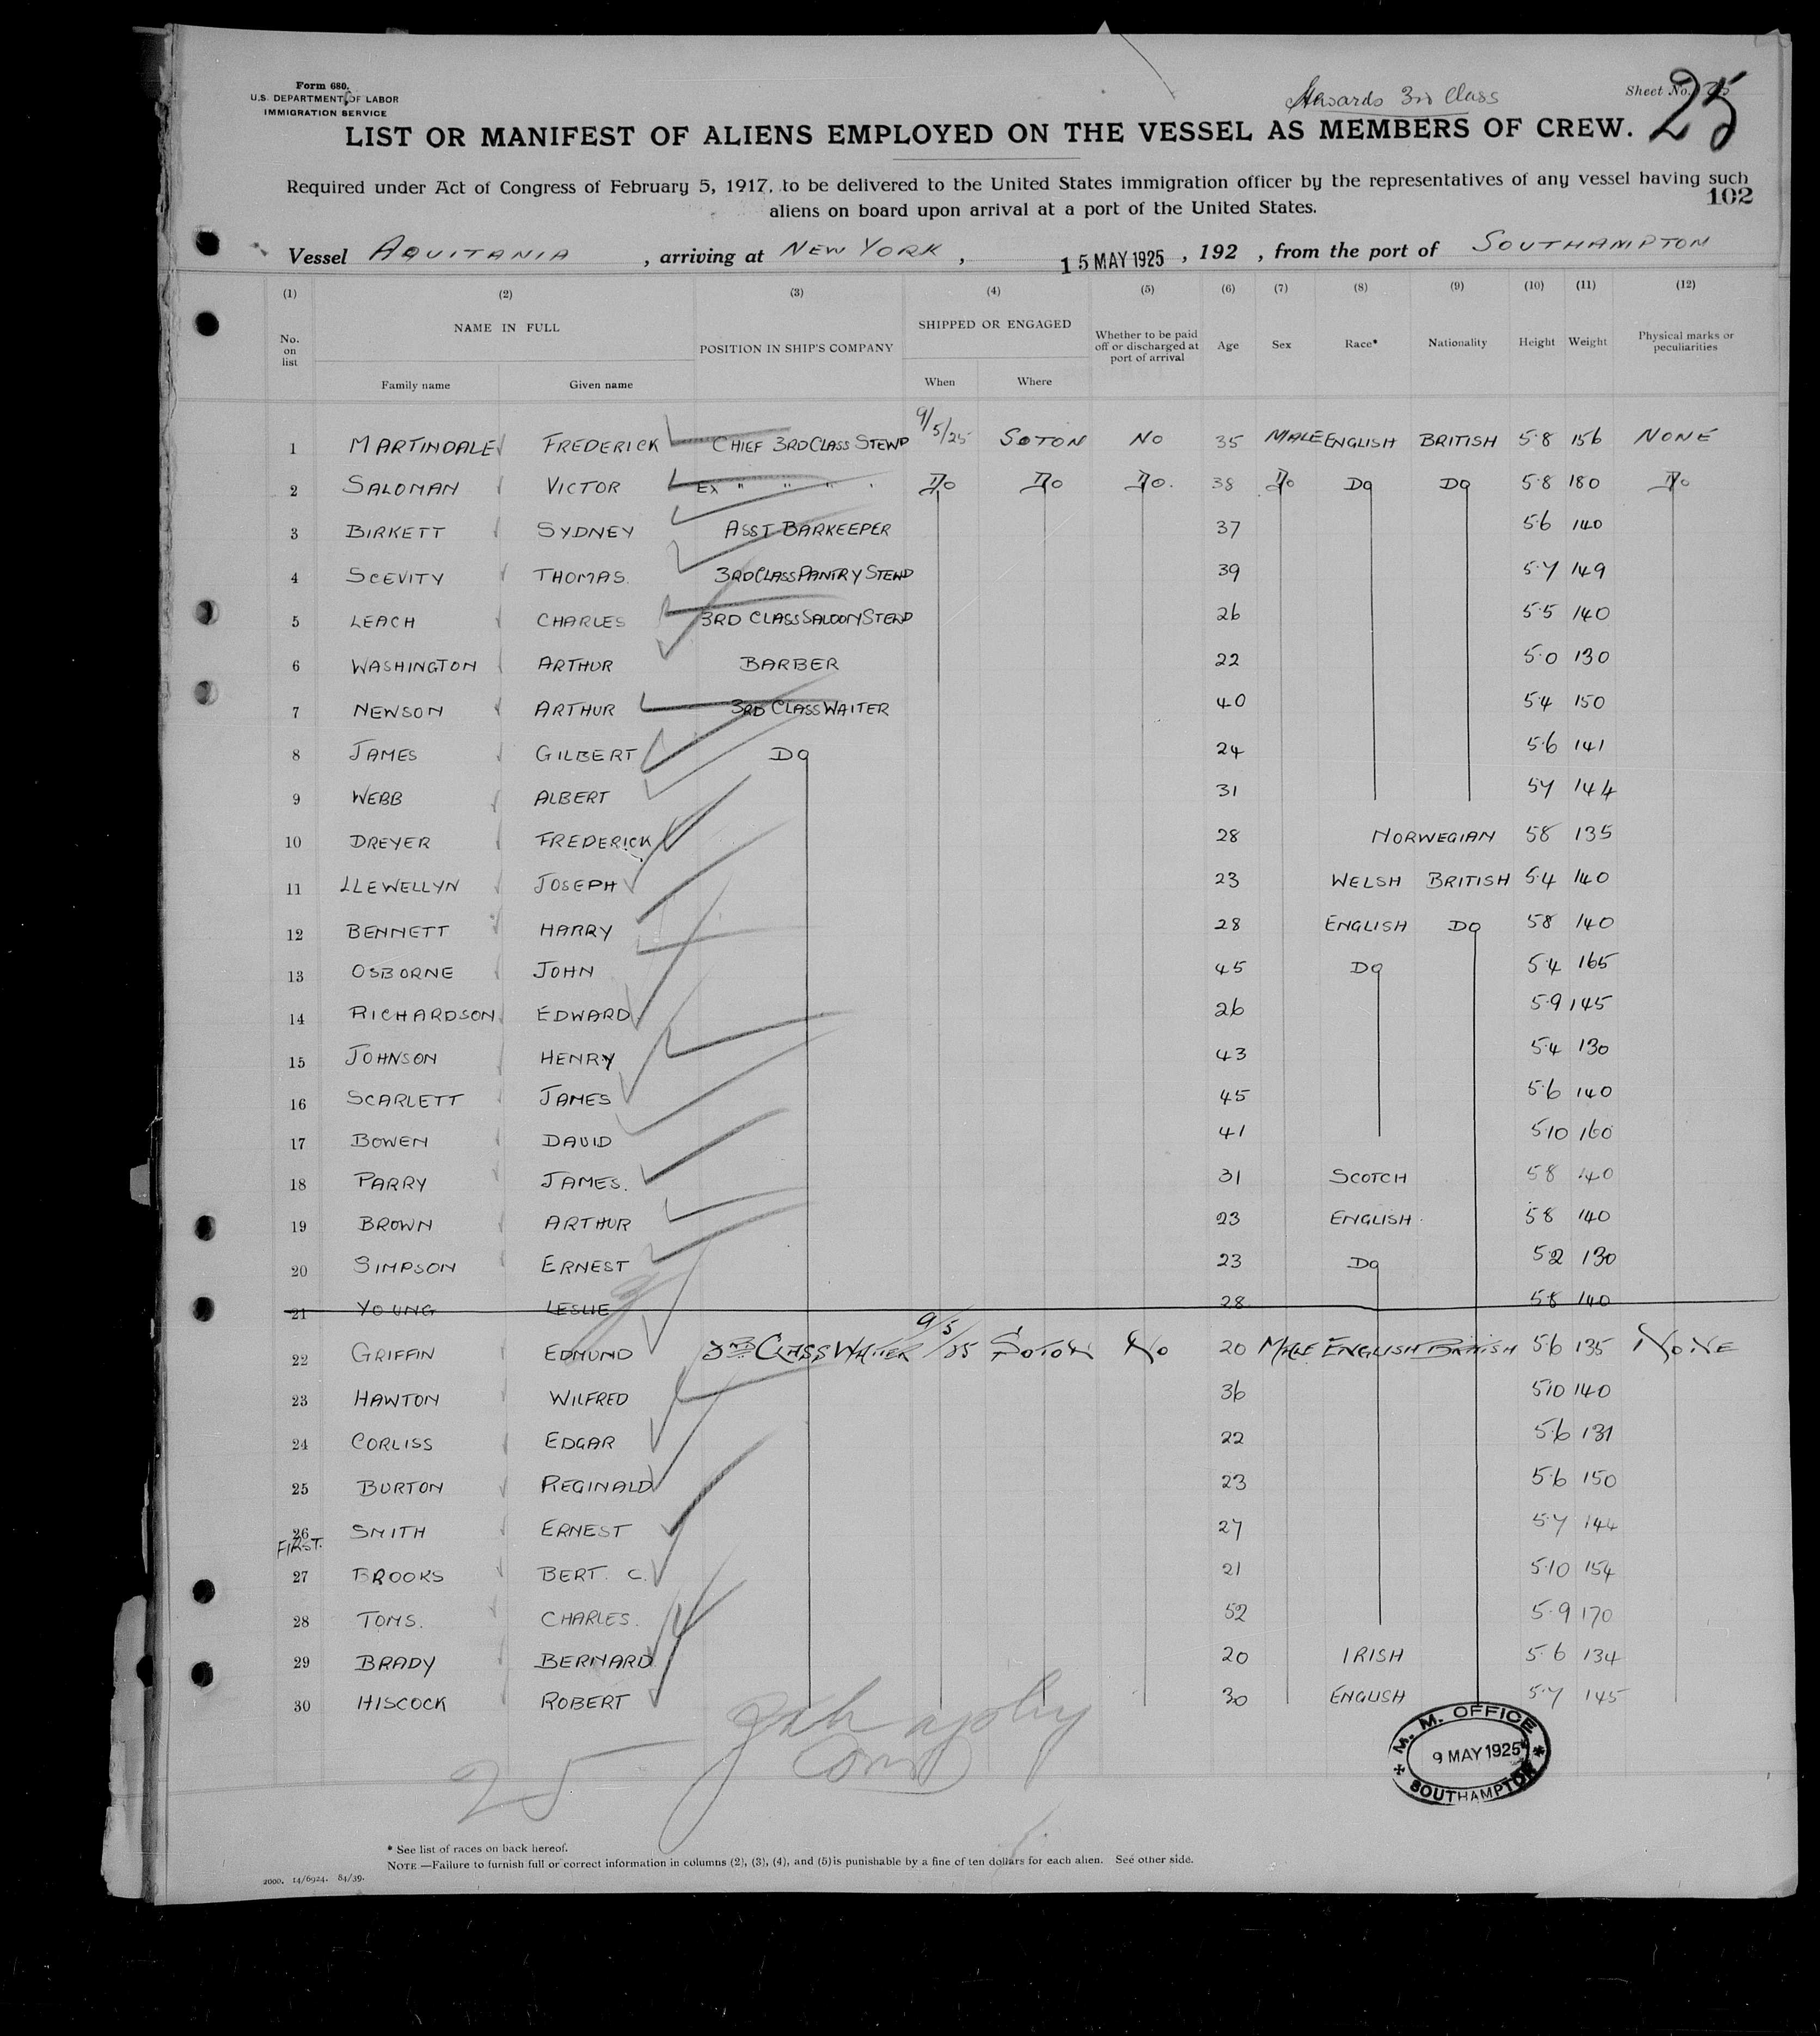 Form 680.
U.S. DEPARTMENT OF LABOR
IMMIGRATION SERVICE
3rd Class
Sheet No. 25
LIST OR MANIFEST OF ALIENS EMPLOYED ON THE VESSEL AS MEMBERS OF CREW.
Required under Act of Congress of February 5, 1917, to be delivered to the United States immigration officer by the representatives of any vessel having such
aliens on board upon arrival at a port of the United States.
102
Vessel AQUITANIA , arriving at NEW YORK , 15 MAY 1925 , 192 , from the port of SOUTHAMPTON
(1) (2) (3) (4) (5) (6) (7) (8) (9) (10) (11) (12)
No. on list NAME IN FULL POSITION IN SHIP'S COMPANY SHIPPED OR ENGAGED Whether to be paid off or discharged at port of arrival Age Sex Race* Nationality Height Weight Physical marks or peculiarities
Family name Given name When Where
1 MARTINDALE FREDERICK CHIEF 3RD CLASS STEWD 9/5/25 SOTON NO 35 MALE ENGLISH BRITISH 5·8 156 NONE
2 SALOMAN VICTOR EX " " " " Do Do Do. 38 Do Do Do 5·8 180 Do
3 BIRKETT SYDNEY ASST BARKEEPER 37 5·6 140
4 SCEVITY THOMAS. 3RD CLASS PANTRY STEWD 39 5·7 149
5 LEACH CHARLES 3RD CLASS SALOON STEWD 26 5·5 140
6 WASHINGTON ARTHUR BARBER 22 5·0 130
7 NEWSON ARTHUR 3RD CLASS WAITER 40 5·4 150
8 JAMES GILBERT DO 24 5·6 141
9 WEBB ALBERT 31 57 144
10 DREYER FREDERICK 28 NORWEGIAN 58 135
11 LLEWELLYN JOSEPH 23 WELSH BRITISH 5·4 140
12 BENNETT HARRY 28 ENGLISH DO 58 140
13 OSBORNE JOHN 45 DO 5·4 165
14 RICHARDSON EDWARD 26 5·9 145
15 JOHNSON HENRY 43 5·4 130
16 SCARLETT JAMES 45 5·6 140
17 BOWEN DAVID 41 5·10 160
18 PARRY JAMES. 31 SCOTCH 58 140
19 BROWN ARTHUR 23 ENGLISH 58 140
20 SIMPSON ERNEST 23 DO 5·2 130
21 YOUNG LESLIE 28 58 140
22 GRIFFIN EDMUND 3RD CLASS WAITER 9/5/25 SOTON No 20 MALE ENGLISH BRITISH 5·6 135 NONE
23 HAWTON WILFRED 36 5·10 140
24 CORLISS EDGAR 22 5·6 131
25 BURTON REGINALD 23 5·6 150
26 SMITH ERNEST 27 5·7 144
FIRST.
27 BROOKS BERT. C. 21 5·10 154
28 TOMS. CHARLES. 52 5·9 170
29 BRADY BERNARD 20 IRISH 5·6 134
30 HISCOCK ROBERT 30 ENGLISH 5·7 145
25
M. M. OFFICE
9 MAY 1925
SOUTHAMPTON
* See list of races on back hereof.
NOTE —Failure to furnish full or correct information in columns (2), (3), (4), and (5) is punishable by a fine of ten dollars for each alien. See other side.
2000. 14/6924. 84/39.